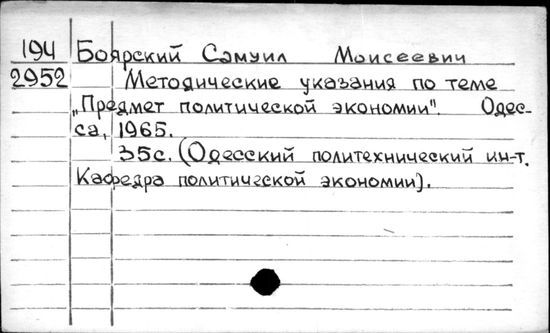 194 Боярский Самуил Моисеевич
2952 Методические указания по теме
„Предмет политической экономии". Одес-
са, 1965.
35с. (Одесский политехнический ин-т.
Кафедра политической экономии).